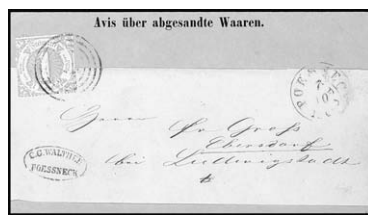 Avis über abgesandte Waaren.
POESSNECK
Herrn
Fr Gross
Ebersdorf
bei Ludwigstadt
C. G. WALTHER
POESSNECK